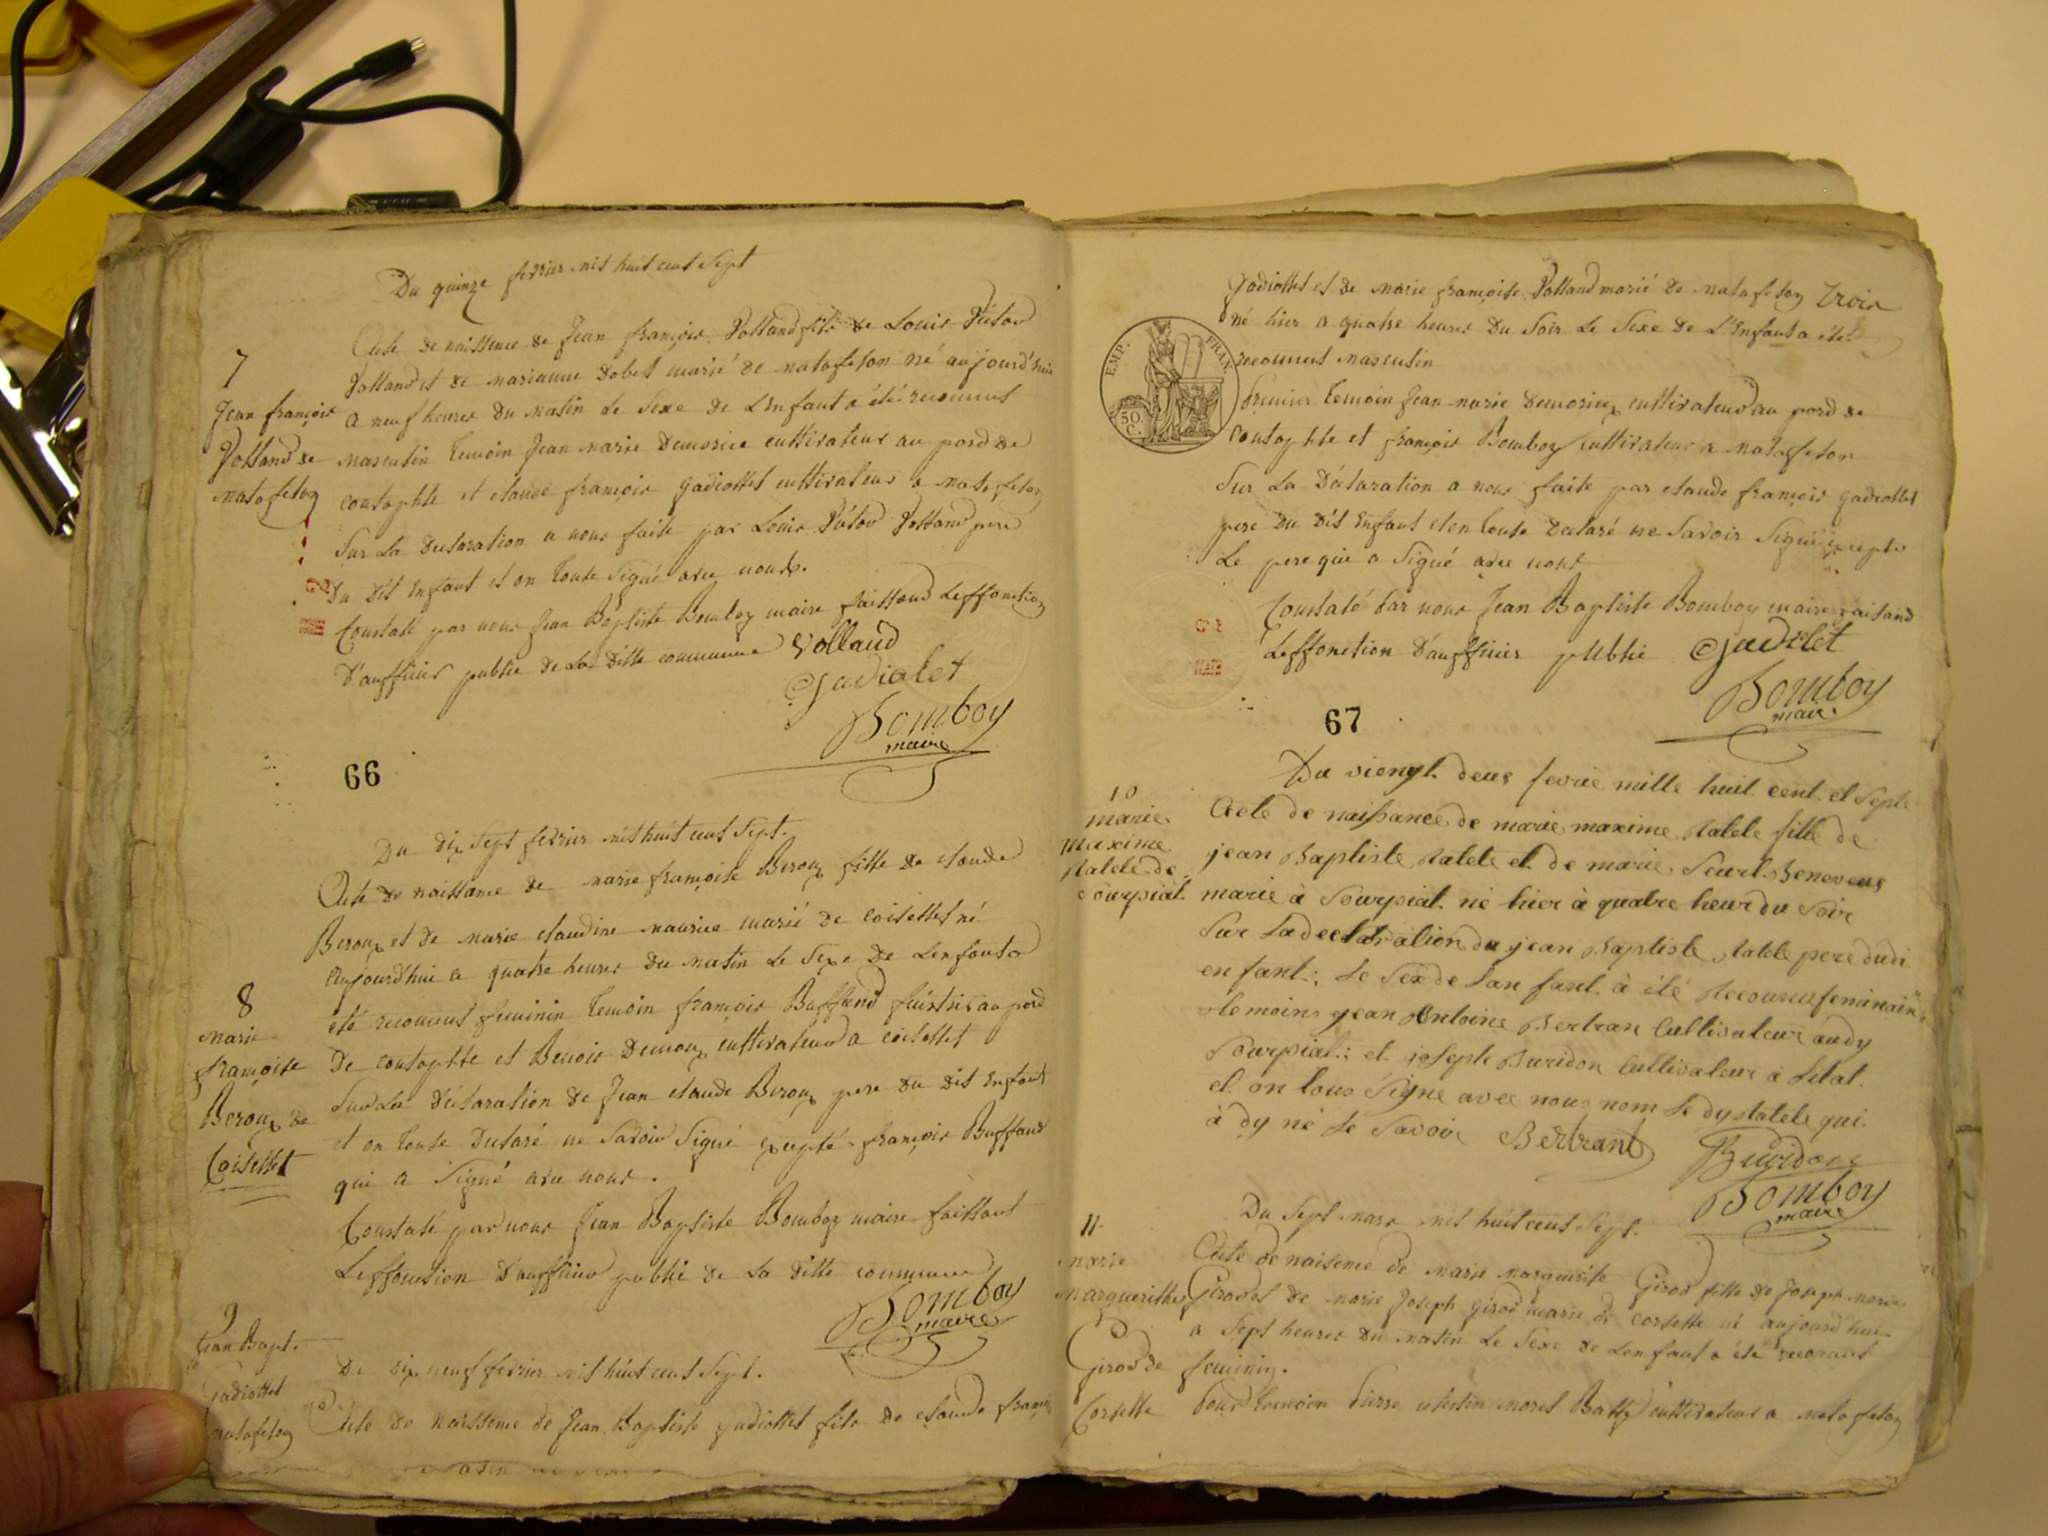 Du quinze fevrier mil huit cent Sept
7
Jean françois
Volland de
matafelon
Acte de naissence de Jean françois Volland fils de Louis Victor
Volland et de marianne Dobet marié de matafelon né aujourd'hui
a neuf heures du matin Le Sexe de L'Enfant a été reconnus
masculin temoin Jean marie Demorice cultivateur au pord de
et claude françois gadiollet cultivateur a matafelon
Sur La declaration a nous faite par Louis Victor Volland pere
Du dit Enfant et on toute Signé avec nous
Constaté par nous Jean Baptiste Bomboy maire faissand Leffonction
D'auffiier public de La ditte commune Volland
Gadiolet
Bomboy
maire
66
Du dix Sept fevrier mil huit cent Sept.
8
marie
françoise
Beroux de
Coisellet
Acte de naissance de marie françoise Beroux fille de claude
Beroux et de marie claudine maurice marié de coisellet né
aujourd'hui a quatre heures du matin Le Sexe de Lenfant a
eté reconnus feminin temoin françois Buffand au pord
De et Benoit cultivateur a coisellet
Sur La declaration de Jean claude Beroux pere du dit Enfant
et on toute Declaré ne Savoir Signé Excepté françois Buffand
qui a Signé avec nous.
Constaté par nous Jean Baptiste Bomboy maire faissant
Leffonction D'auffiier public de La ditte commune
Bomboy
maire
9
Jean Bapt.
gadiollet
matafelon
Du dix neuf fevrier mil huit cent Sept.
Acte de naissence de Jean Baptiste gadiollet fils de claude françois
gadiollet et de marie françoise Volland marié de matafelon trois
né hier a quatre heures du Soir Le Sexe de L'Enfant a été
EMP. FRAN.
50 C.
reconnus masculin
Premier temoin Jean marie cultivateur au pord de
et françois Bomboy cultivateur a matafelon
Sur La Déclaration a nous faite par claude françois gadiollet
pere du dit Enfant et on toute Declaré ne Savoir Signé Excepté
Le pere qui a Signé avec nous
Constaté Par nous Jean Baptiste Bomboy maire faisand
Leffonction D'auffiier publie Gadiolet
Bomboy
maire
67
Du viengt deux fevrie mille huit cent et Sept
10
marie
maxime
de
Sourpiat
Acte de naissance de marie maxime fille de
jean Baptiste et de marie
marie à Sourpiat né hier à quatre heur du Soir
Sur La declaration du jean Baptiste pere dudi
enfant; Le Sex de Lan fant à été Reconnu feminain
temoins jean Antoine Bertran Cultivateur audy
Sourpiat; et joseph Buridon Cultivateur à
et on tous Signe avec nous nom Le dy qui
à dy né Le Savoir Bertrand
Buridon
Bomboy
maire
Du Sept mars mil huit cent Sept.
11
marie
Marguerithe
Girod de
Corcelle
Acte de naisence de marie marguerite Girod fille de Joseph marie
Girod et de marie Joseph girod marié de corcelle né aujourd'hui
a Sept heures du matin Le Sexe de Lenfant a été reconnut
feminin.
Pour temoin Pierre morel Bally cultivateur a matafelon